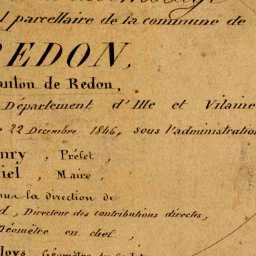 l parcellaire de la commune de
REDON,
anton de Redon,
Département d'Ille et Vilaine
22 Décembre 1846, sous l'administration
nry, Préfet,
iel, Maire,
ous la direction de
Directeur des contributions directes,
Géomètre en chef,
loys